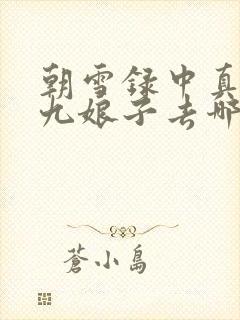 朝雪録中真
九娘子去哪
蒼小島